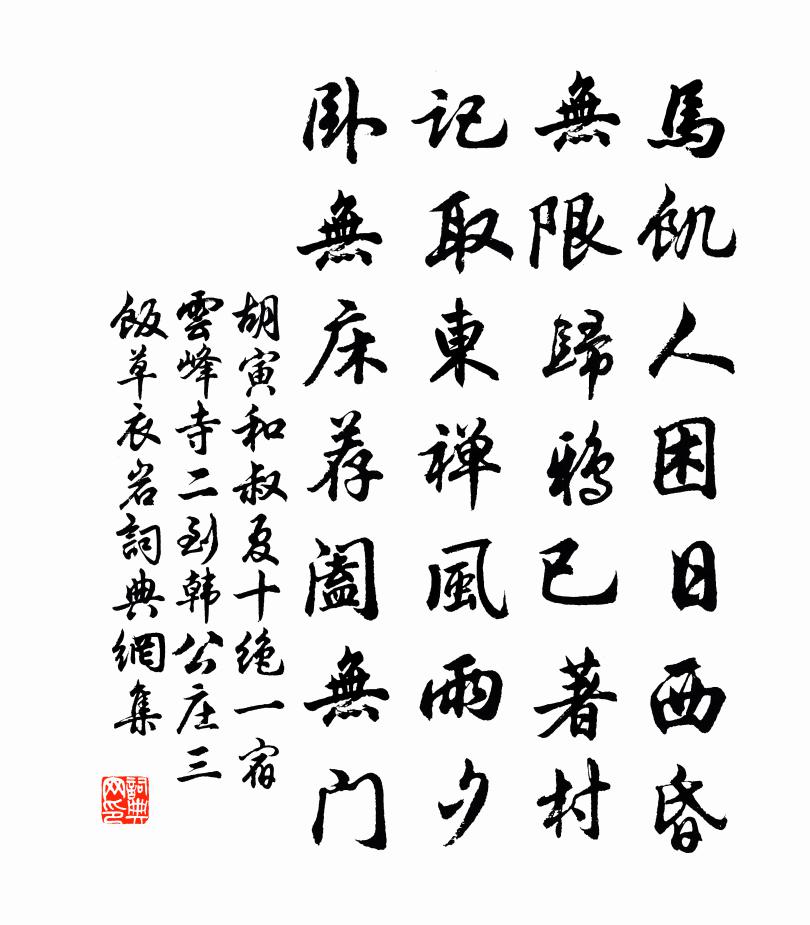 馬飢人困日西昏
無限歸鴉已著村
記取東禅風雨夕
卧無床荐闔無门
胡寅和叔夏十绝一宿
雲峰寺二到韩公庄三
飯草衣岩詞典網集
詞典网印